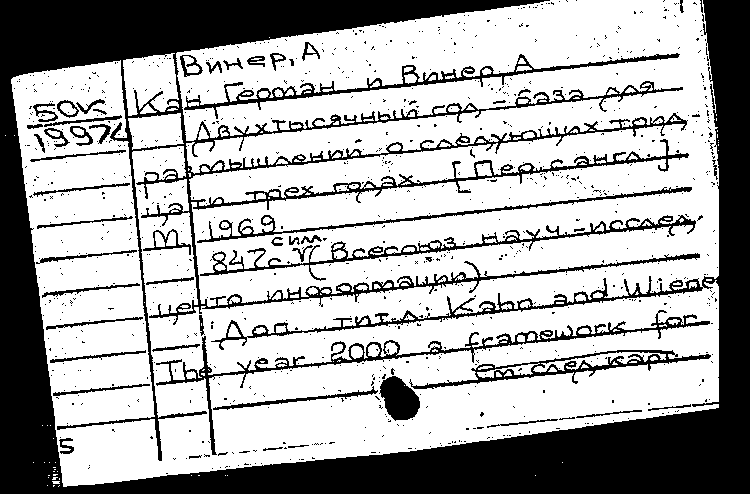 Винер, А
50к
19972
Кан, Герман и Винер, А
Двухтысячный год - база для
размышлений о следующих трид-
цати трех годах. [Пер. с англ.].
М. 1969.
сим.
847с. V (Всесоюз. науч.-исслед.
центр информации).
Доп. тит. л.: Kahn and Wiene
The year 2000 a framework for
см. след. карт.
5